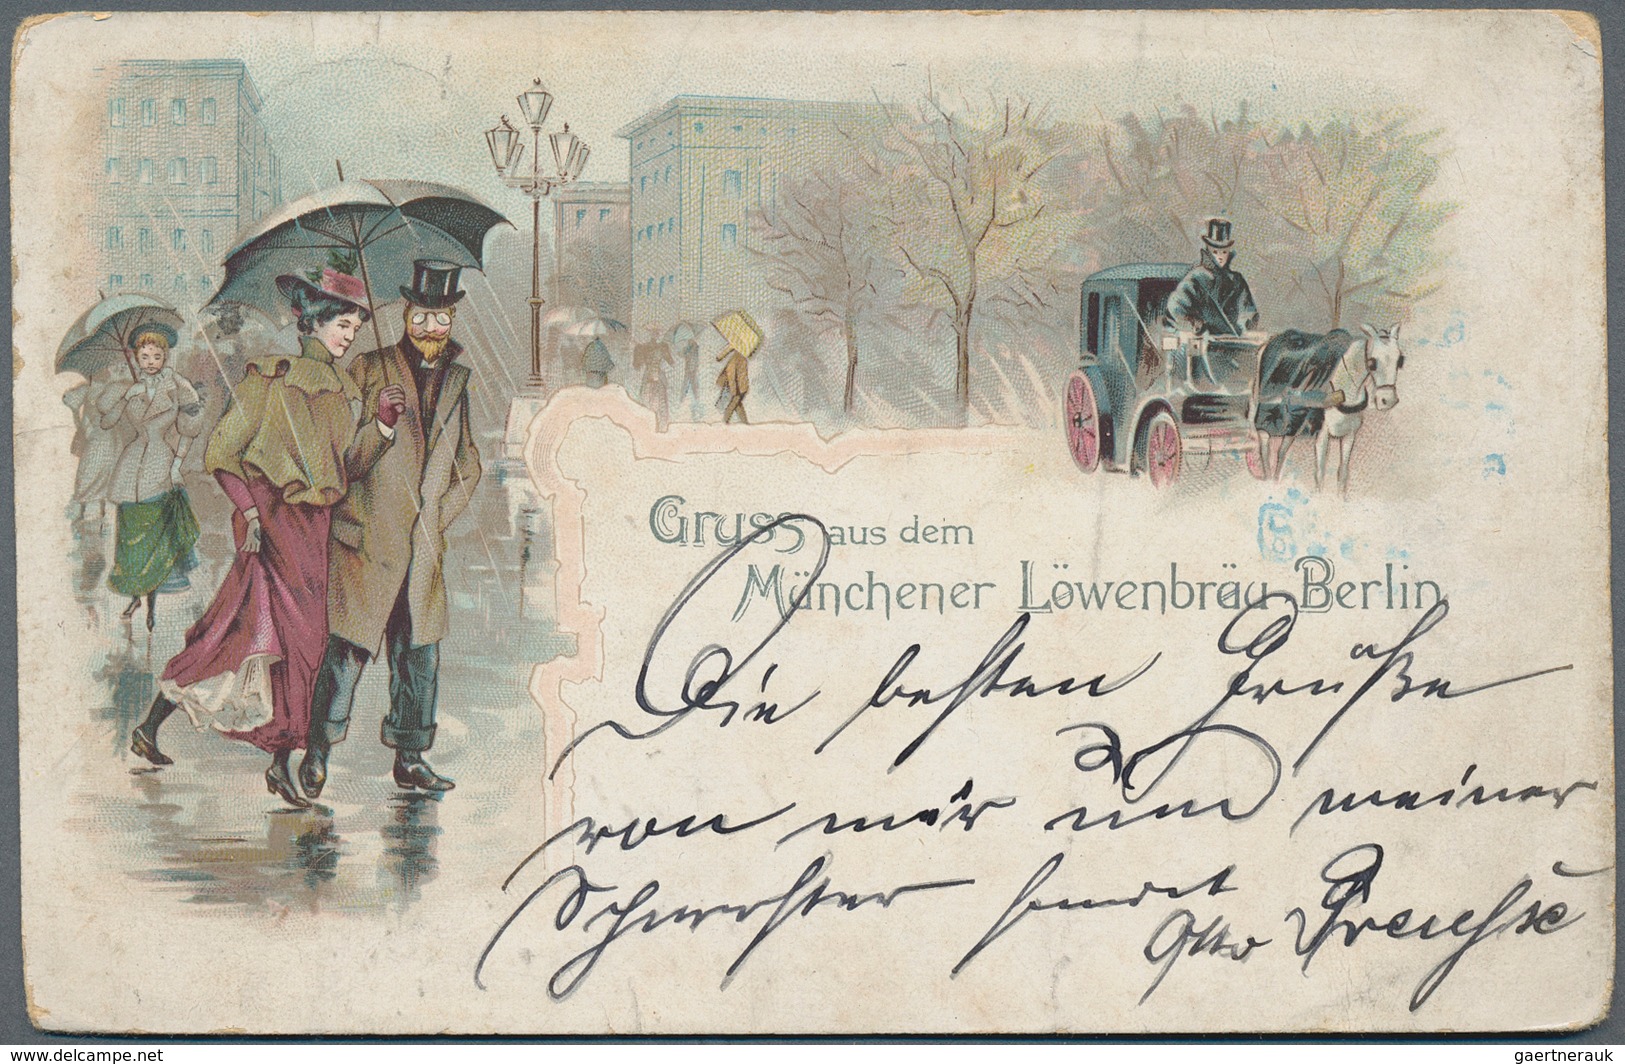 Gruss aus dem
Münchener Löwenbräu-Berlin
Die besten Grüße
von mir und meiner
Schwester sendet
Otto
www.delcampe.net
gaertnerauk